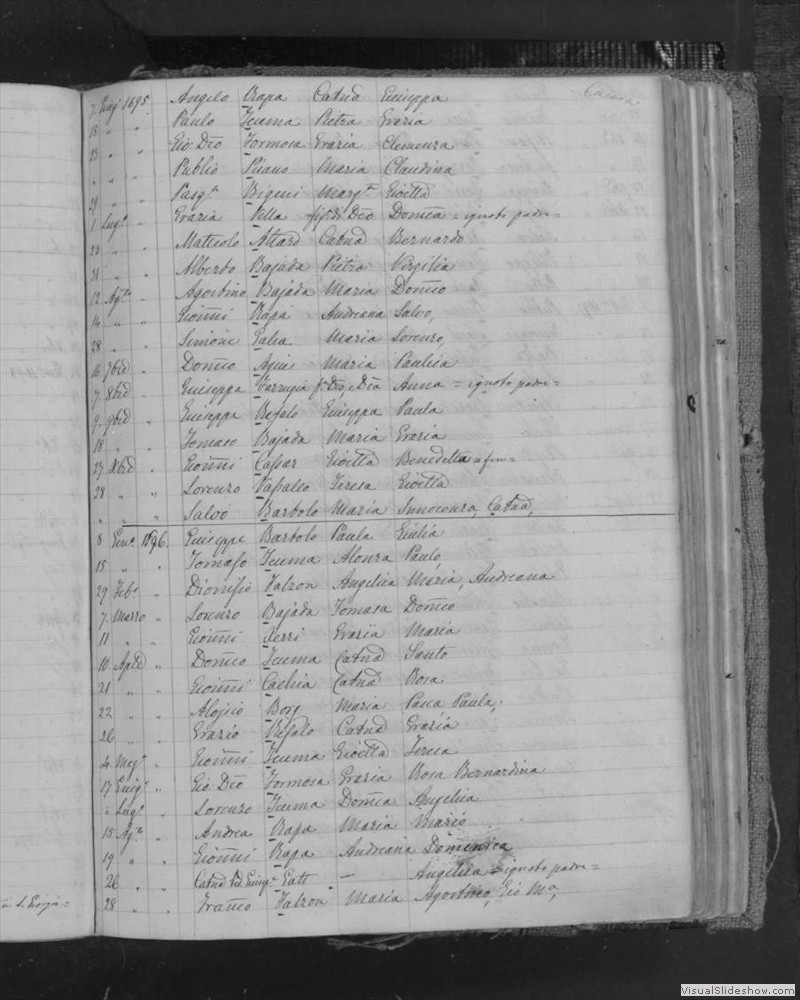 7 Giug° 1695 Angelo Rapa Catnā Giuseppa
15 " " Paulo Teuma Pietra Grazia
23 " " Gio Dio Formosa Grazia Clemenza
" " " Publio Pisano Maria Claudina
29 " " Pasq.e Bigeni Marg.ta Gioetta
1 Lug° " Grazia Vella Domca = ignoto padre =
23 " " Matteolo Attard Catnā Bernardo
31 " " Alberto Bajada Pietro Virgilia
12 Ag.to " Agostino Bajada Maria Domco
14 " " Gionni Rapa Andreana Salvo,
28 " " Simone Galea Maria Lorenzo,
16 7bre " Domco Agius Maria Paulica
7 8bre " Giuseppa Farrugia Anna = ignoto padre =
9 9bre " Giuseppe Refalo Giuseppa Paula
18 " " Tomaso Bajada Maria Grazia
27 Xbre " Gionni Cassar Gioetta Benedetta
28 " " Lorenzo Vassallo Teresa Gioetta
" " " Salvo Bartolo Maria Innocenza, Catnā,
8 Gen° 1696 Giuseppe Bartolo Paula Giulia
15 " " Tomaso Teuma Alonza Paulo
29 Feb° " Dionisio Falzon Angelica Maria, Andreana
7 Marzo " Lorenzo Bajada Tomasa Domco
11 " " Gionni Xerri Grazia Maria
10 Aple " Domco Teuma Catnā Santo
21 " " Gionni Cachia Catnā Rosa
22 " " Aloisio Borg Maria Paula,
26 " " Grazio Refalo Catnā Grazia
4 Mag° " Gionni Teuma Gioetta Teresa
17 Giug° " Gio Dio Formosa Grazia Rosa Bernardina
" Lug° " Lorenzo Teuma Domca Angelica
15 Ag.to " Andrea Rapa Maria Mario
19 " " Gionni Rapa Andreana Domenica
26 " " Catnā Gatt — Angelica = ignoto padre =
28 " " Franco Falzon Maria Agostino, Gio Ma,
VisualSlideshow.com